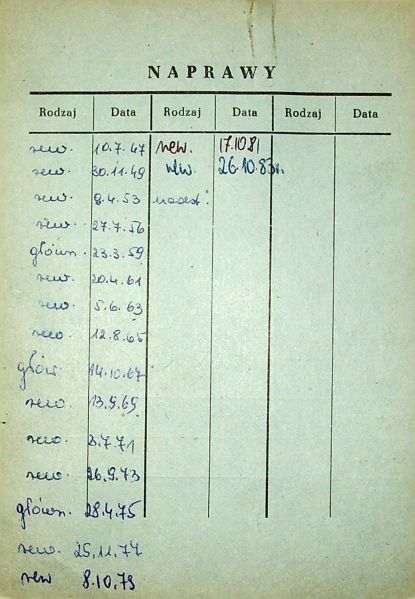 NAPRAWY
Rodzaj Data Rodzaj Data Rodzaj Data
rew. 10.7.47 rew. 17.10.81
rew. 30.11.49 rew. 26.10.83r.
rew. 8.4.53
rew. 27.7.56
główn. 23.3.59
rew. 20.4.61
rew. 5.6.63
rew. 12.8.65
główn. 14.10.67
rew. 13.9.69
rew. 3.7.71
rew. 26.9.73
główn. 28.4.75
rew. 25.11.77
rew 8.10.79